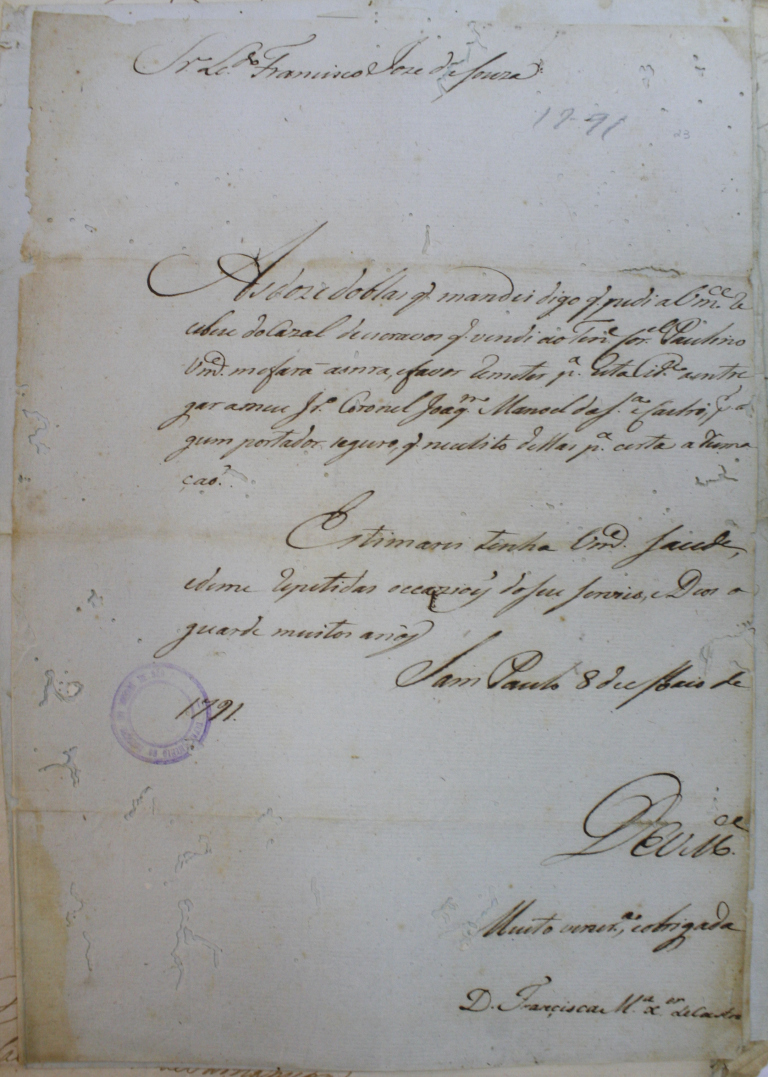 Sr. Ld.º Francisco Joze de Souza
1791
23
As doze doblas q. mandei digo q. pedi a Vm.ce re
cebeu do Cazal de escravos q. vendi ao Ten.e Cor.el Paulino
Vmd. me fará a onra, e favor remeter p.a esta Cid.e a entre
gar a meu Ir.º Coronel Joaq.m Manoel da S.a e Castro, p. al
gum portador seguro, q. necesito dellas p.a certa a Rema
çaõ.
Estimarei tenha Vmd. saude,
e deme repetidas occazioẽs do seu serviso, e Deos o
guarde muitos anõs
Sam Paulo 8 de Maio de
1791.
De V. M.ce
Muito vener.ª, e obrigada
D. Francisca M.a X.er de Castro